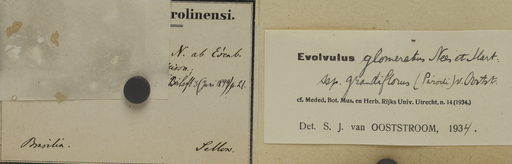 rolinensi.
N. ab Esenb.
Brasilia.
Sellow.
Evolvulus glomeratus Nees et Mart.
ssp. grandiflorus (Parodi) v. Ooststr.
cf. Meded. Bot. Mus. en Herb. Rijks Univ. Utrecht, n. 14 (1934.)
Det. S. J. van OOSTSTROOM, 1934.